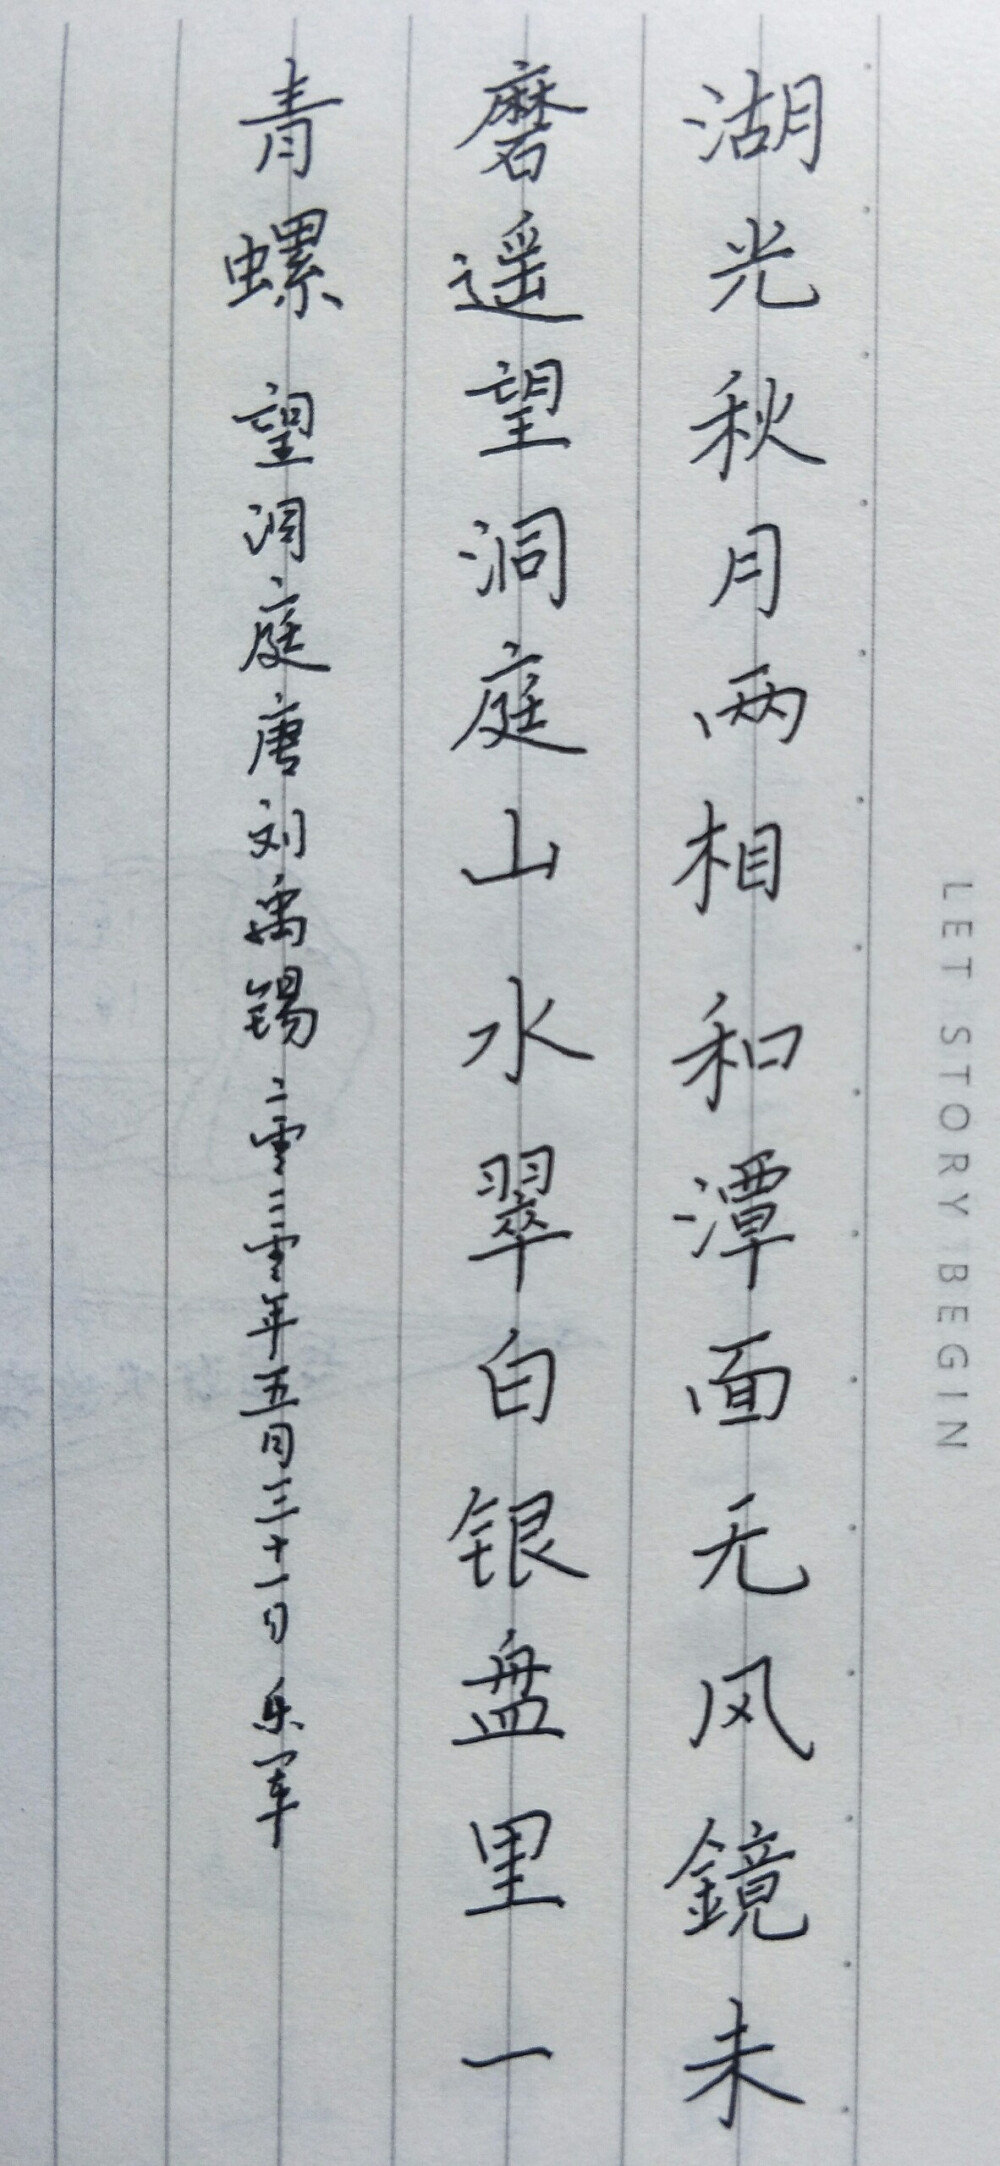 湖光秋月两相和潭面无风鏡未
磨遥望洞庭山水翠白银盘里一
青螺 望洞庭唐刘禹锡二零二零年五月三十一日 乐军
LET STORY BEGIN